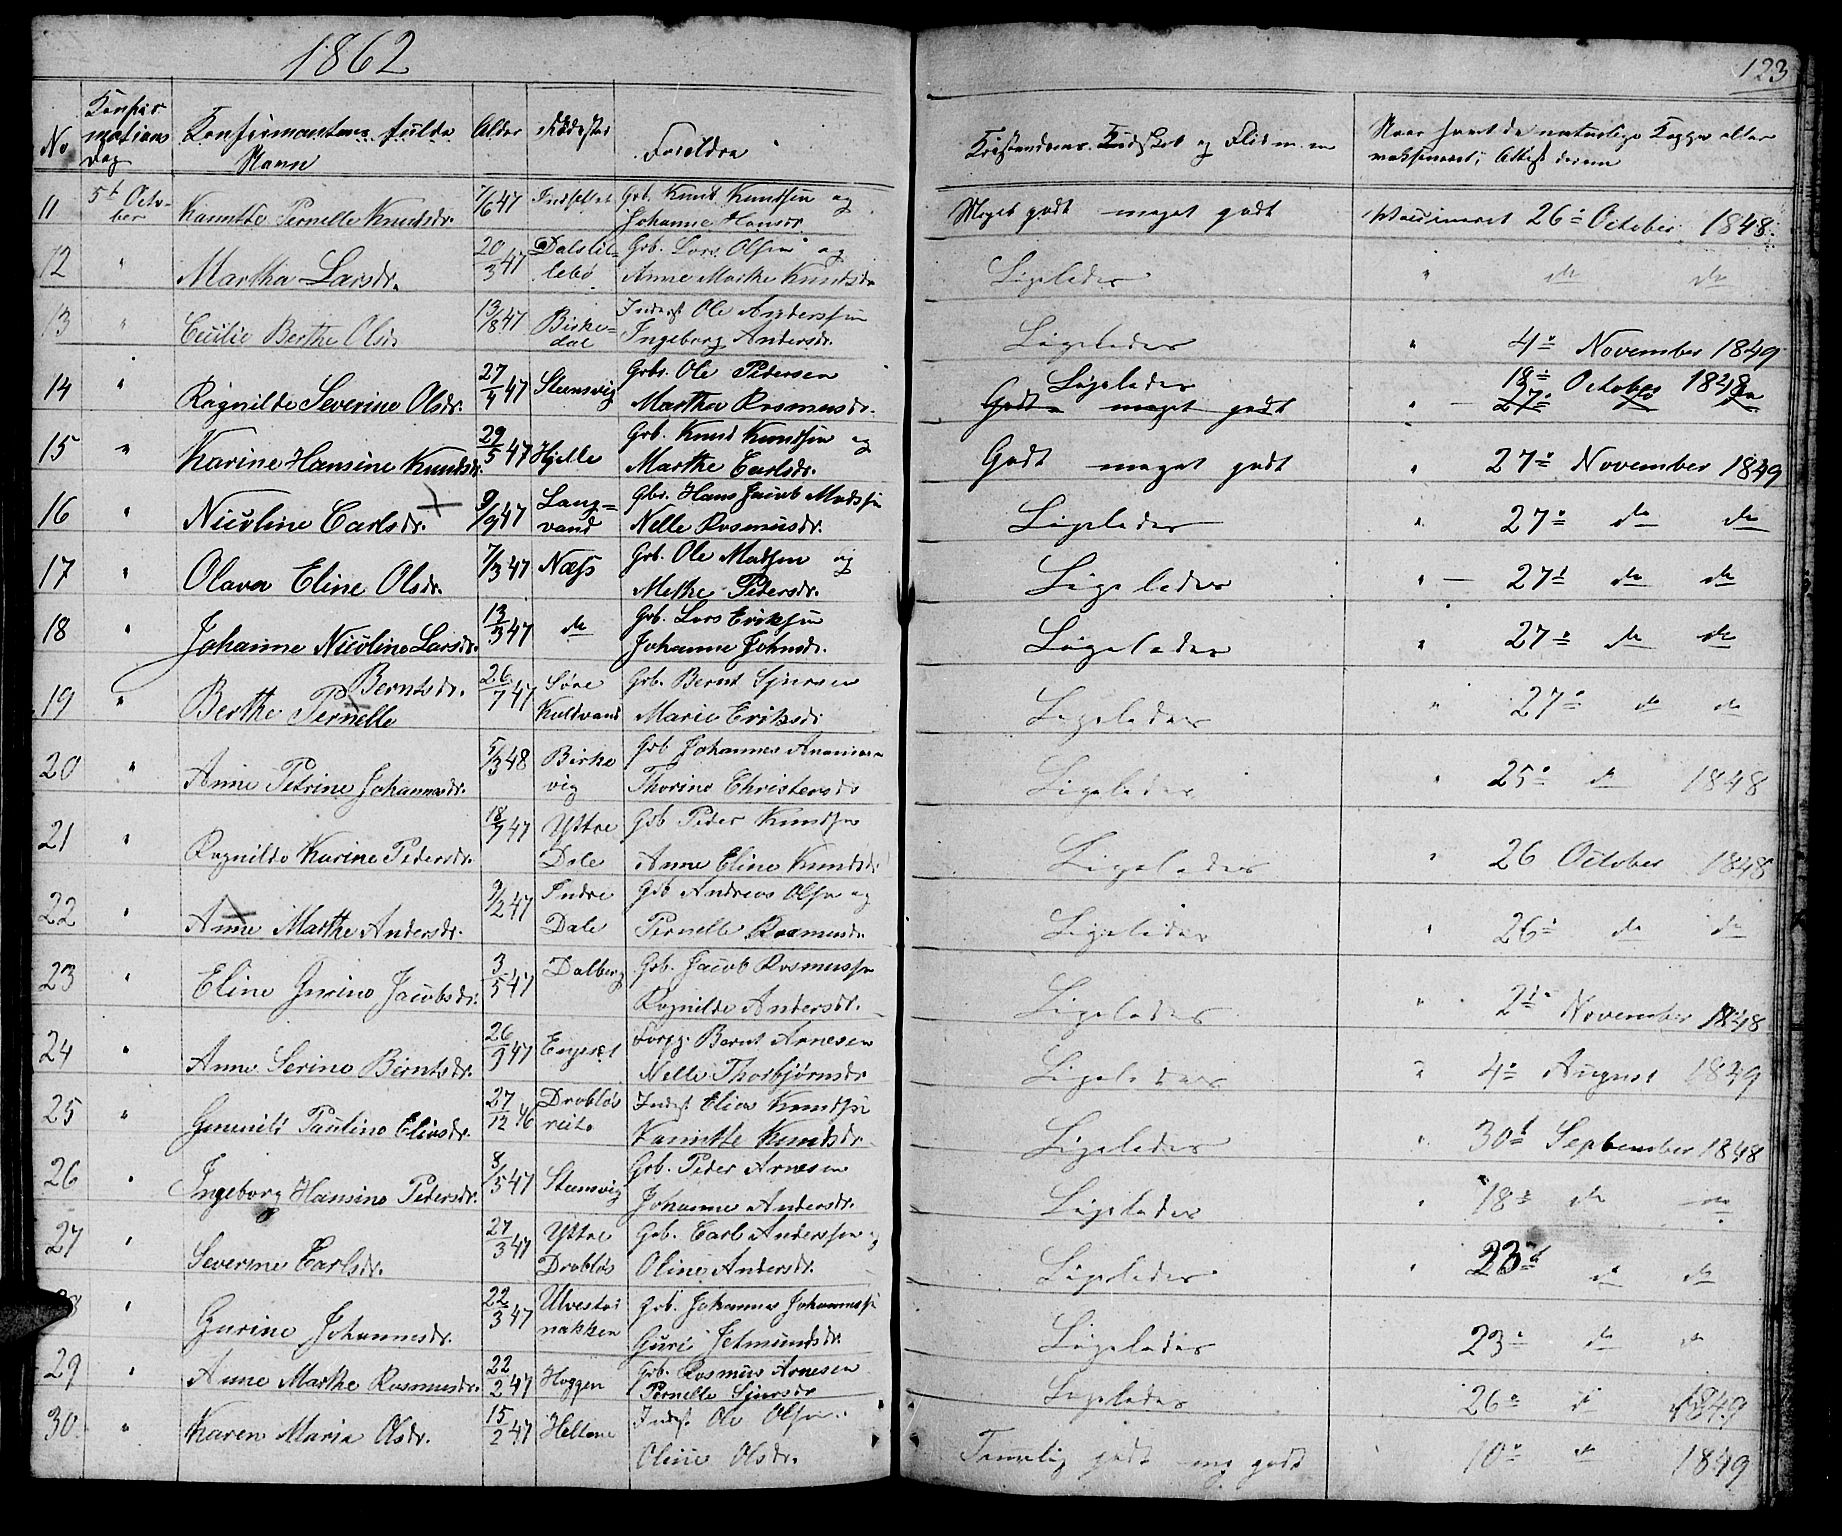 1862
123
No
Confir
mations
Dag
Konfirmantens fulde
Navn
Alder
Foreldre
Kristendoms Kundskab og Flid m. m
Naar havt de naturlige Kopper eller
vaksineret; Attest derom
11 5t Octo-
ber Pernelle Knudsdr. 7/6 47 Indsettet Grb. Knud Knudsen og
Johanne Hansdr. Meget godt meget godt Vaccineret 26de October 1848.
12 " Martha Larsdr. 20/3 47 Grb. Lars Olsen og
lebø Anne Marthe Knudsdr Ligeledes " do do
13 " Cecilie Berthe Olsd. 13/8 47 Birke=
dal Inderst Ole Anderssen
Ingeborg Andersdr. Ligeledes " 4de November 1849
14 " Ragnilde Severine Olsdr. 27/4 47 Steensvig Grb. Ole Pedersen
Martha Rasmusdr. Ligeledes 18de October 1848
Godt meget godt " 27de
15 " Karine Hansine Knudsdr. 29/5 47 Hjelle Grb. Knud Knudsen og
Marthe Carlsdr. Godt meget godt " 27de November 1849
16 " Nicoline Carlsdr. 9/9 47 Lang=
vand Gbr. Hans Jacob Madssen
Nelle Rasmusdr. Ligeledes " 27de do do
17 " Olava Eline Olsdr. 7/3 47 Næss Grb. Ole Madsen og
Methe Pedersdr. Ligeledes " 27de do do
18 " Johanne Nicoline Larsdr. 13/3 47 do Grb. Lars Eriksen
Johanne Johnsdr. Ligeledes " 27de do do
19 " Berntsdr.
Berthe Pernelle 26/7 47 Søre
Kaldvand Grb. Bernt Sjursen
Marie Eriksdr Ligeledes " 27de do do
20 " Anne Petrine Johannesdr. 5/3 48 Birke
vig Grb Johannes
Thorine Christensdr Ligeledes " 25de do 1848
21 " Ragnilde Karine Pedersdr. 18/7 47 Yttre
Dale Grb Peder Knudsen
Anne Eline Knudsdr Ligeledes " 26 October 1848
22 " Anne Marthe Andersdr. 9/2 47 Indre
Dale Grb Andreas Olsen og
Pernelle Rasmusdr. Ligeledes " 26de do do
23 " Eline Gurine Jacobsdr. 3/5 47 Dalberg Grb. Jacob Rasmussen
Ragnilde Andersdr. Ligeledes " November 1848
24 " Anne Serine Berntsdr. 26/9 47 Engeset Forpg. Bernt Arnesen
Nelle Thorbjørnsdr Ligeledes " 4de August 1849
25 " Paulina Eliasdr. 27/12 46 Drabløs
reite Inderst Elias Knudsen
Knudsdr. Ligeledes " 30t September 1848
26 " Ingeborg Hansine Pedersdr. 8/5 47 Steensvig Grb. Peder Arnesen
Johanne Andersdr. Ligeledes " 18de do do
27 " Severine Carlsdr. 27/3 47 Yttre
Drabløs Grb. Carl Anderssen og
Oline Andersdr. Ligeledes " 23de do do
28 " Gurine Johannesdr. 22/3 47 Ulvestad
nakken Grb. Johannes Johannessen
Guri Jetmundsdr. Ligeledes 23de do do
29 " Anne Marthe Rasmusdr. 22/2 47 Haggen Grb. Rasmus Arnesen
Pernelle Sjursdr Ligeledes 26de do 1849
30 " Karen Maria Olsdr. 15/2 47 Hellene Inderst Ole Olsen.
Oline Olsdr. Temmelig godt meg godt 10de do 1849